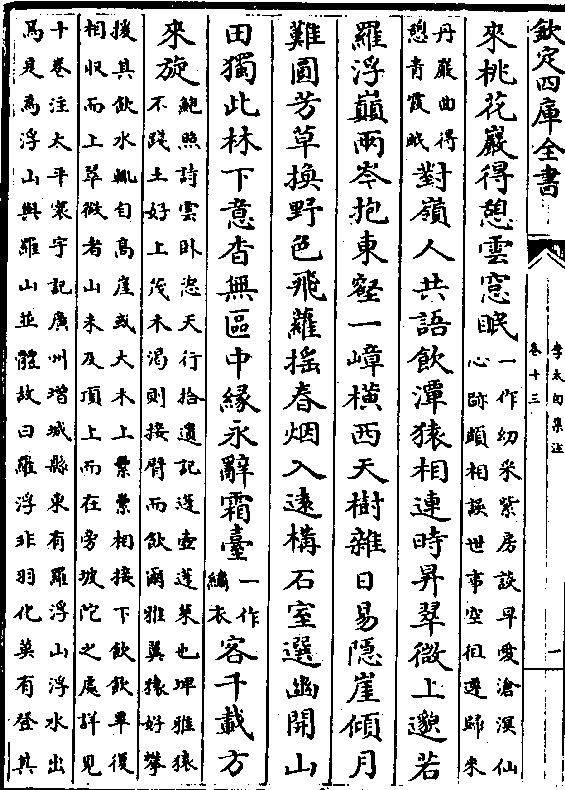 欽定四庫全書
李太白集注
卷十三
一
來桃花巖得憩雲窓眠一作幼采紫房談早愛滄溟仙
心跡頗相誤世事空徂遷歸來
丹巖曲得
憩青霞眠對嶺人共語飲潭猿相連時昇翠微上邈若
羅浮巔兩岑抱東壑一嶂橫西天樹雜日易隱崖傾月
難圓芳草換野色飛蘿搖春烟入遠構石室選幽開山
田獨此林下意杳無區中緣永辭霜臺一作
繡衣客千載方
來旋鮑照詩雲卧恣天行拾遺記蓬壺蓬萊也埤雅猿
不踐土好上茂木渴則接臂而飲爾雅翼猿好攀
援其飲水輒自高崖或大木上纍纍相接下飲飲畢復
相収而上翠微者山未及頂上而在旁坡陀之處詳見
十卷注太平寰宇記廣州増城縣東有羅浮山浮水出
焉是為浮山與羅山並體故曰羅浮非羽化莫有登其